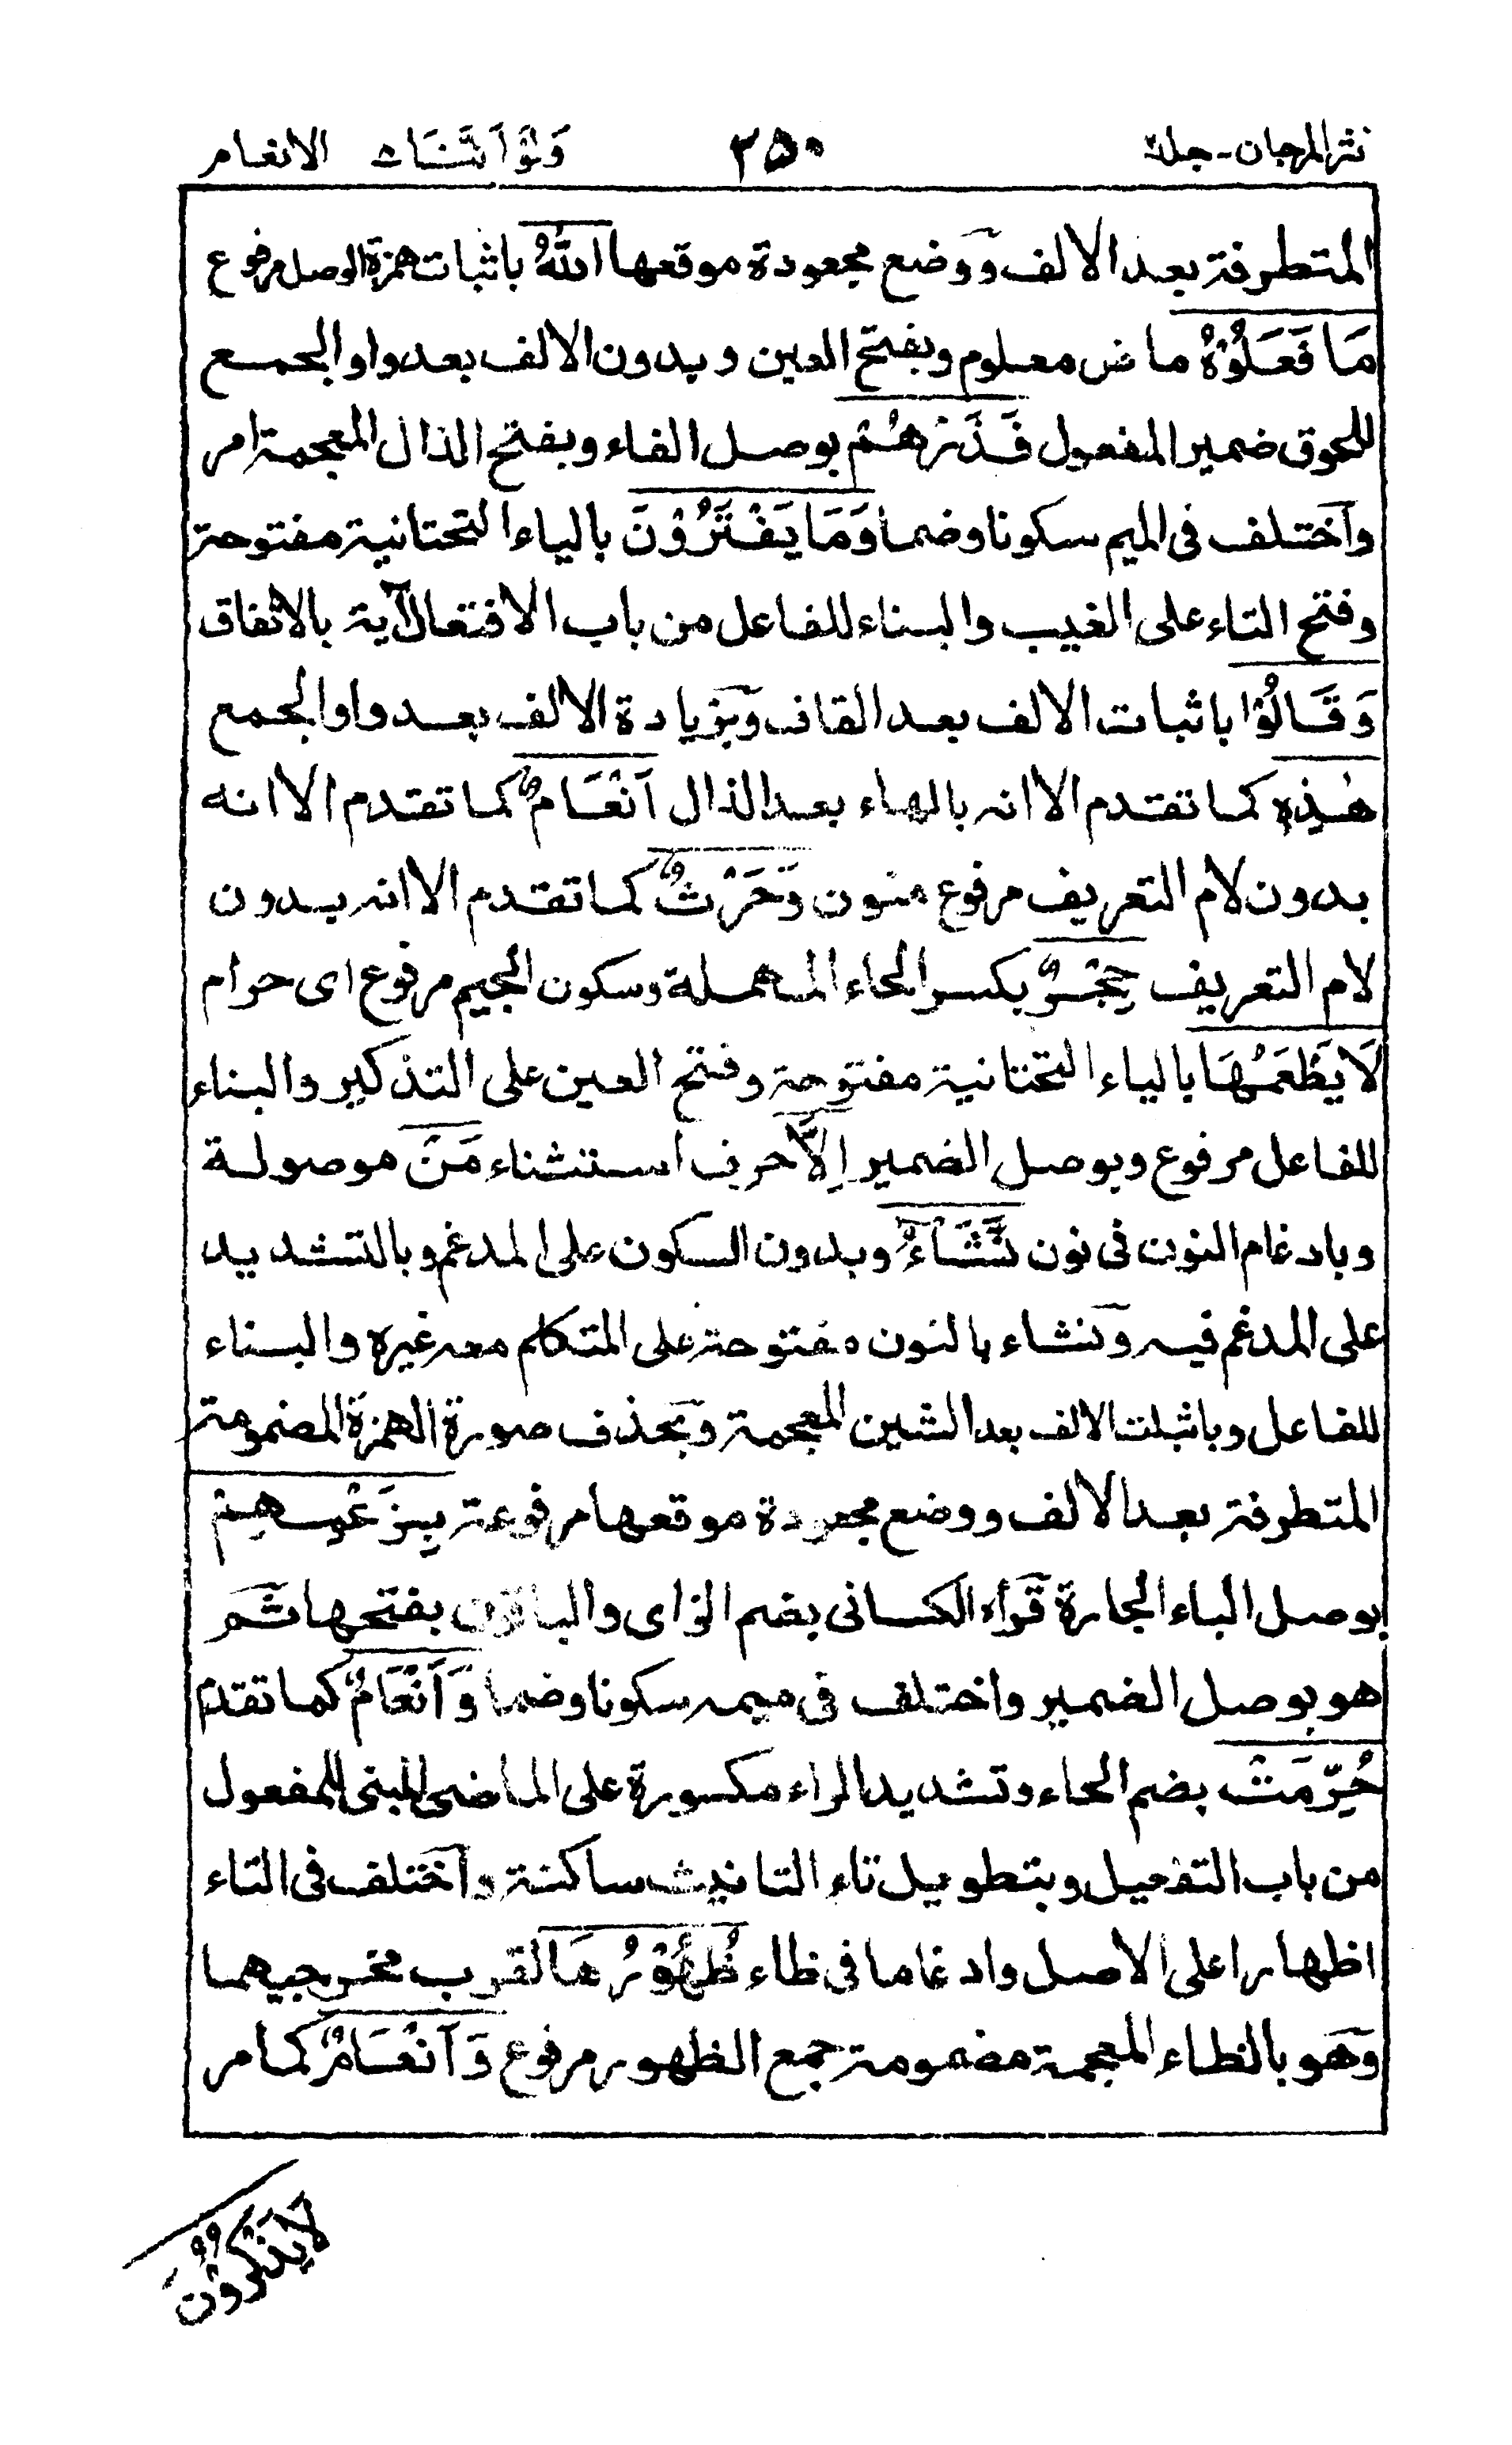 نثر المرجان - جلد٢ ٣٥٠ وَلَوْ اَنَّنَا الانعام
المتطرفة بعد الالف ووضع مجعودة موقعها اللّٰهُ باثبات همزة الوصل مرفوع
مَا فَعَلُوْهُ ماض معلوم وبفتح العين وبدون الالف بعد واو الجمع
للحوق ضمير المفعول فَذَرْهُمْ بوصل الفاء وبفتح الذال المعجمة امر
واختلف فى الميم سكونا وضما وَمَا يَفْتَرُوْنَ بالياء التحتانية مفتوحة
وفتح التاء على الغيب والبناء للفاعل من باب الافتعال آية بالاتفاق
وَقَالُوْا باثبات الالف بعد القاف وبزيادة الالف بعد واو الجمع
هٰذِهٖ كما تقدم الا انه بالهاء بعد الذال اَنْعَامٌ كما تقدم الا انه
بدون لام التعريف مرفوع منون وَحَرْثٌ كما تقدم الا انه بدون
لام التعريف حِجْرٌ بكسر الحاء المهملة وسكون الجيم مرفوع اى حرام
لَا يَطْعَمُهَا بالياء التحتانية مفتوحة وفتح العين على التذكير والبناء
للفاعل مرفوع وبوصل الضمير اِلَّا حرف استثناء مَنْ موصولة
وبادغام النون فى نون نَّشَآءُ وبدون السكون على المدغم وبالتشديد
على المدغم فيه ونشاء بالنون مفتوحة على المتكلم معه غيره والبناء
للفاعل وباثبات الالف بعد الشين المعجمة وبحذف صورة الهمزة المضمومة
المتطرفة بعد الالف ووضع مجعودة موقعها مرفوعة بِزَعْمِهِمْ
بوصل الباء الجارة قرأه الكسائى بضم الزاى والباقون بفتحها ثم
هو بوصل الضمير واختلف فى ميمه سكونا وضما وَاَنْعَامٌ كما تقدم
حُرِّمَتْ بضم الحاء وتشديد الراء مكسورة على الماضى المبنى للمفعول
من باب التفعيل وبتطويل تاء التانيث ساكنة واختلف فى التاء
اظهارا على الاصل وادغاما فى ظاء ظُهُوْرُهَا لقرب مخرجيهما
وهو بالظاء المعجمة مضمومة جمع الظهور مرفوع وَاَنْعَامٌ كما مر
لَا يَذْكُرُوْنَ